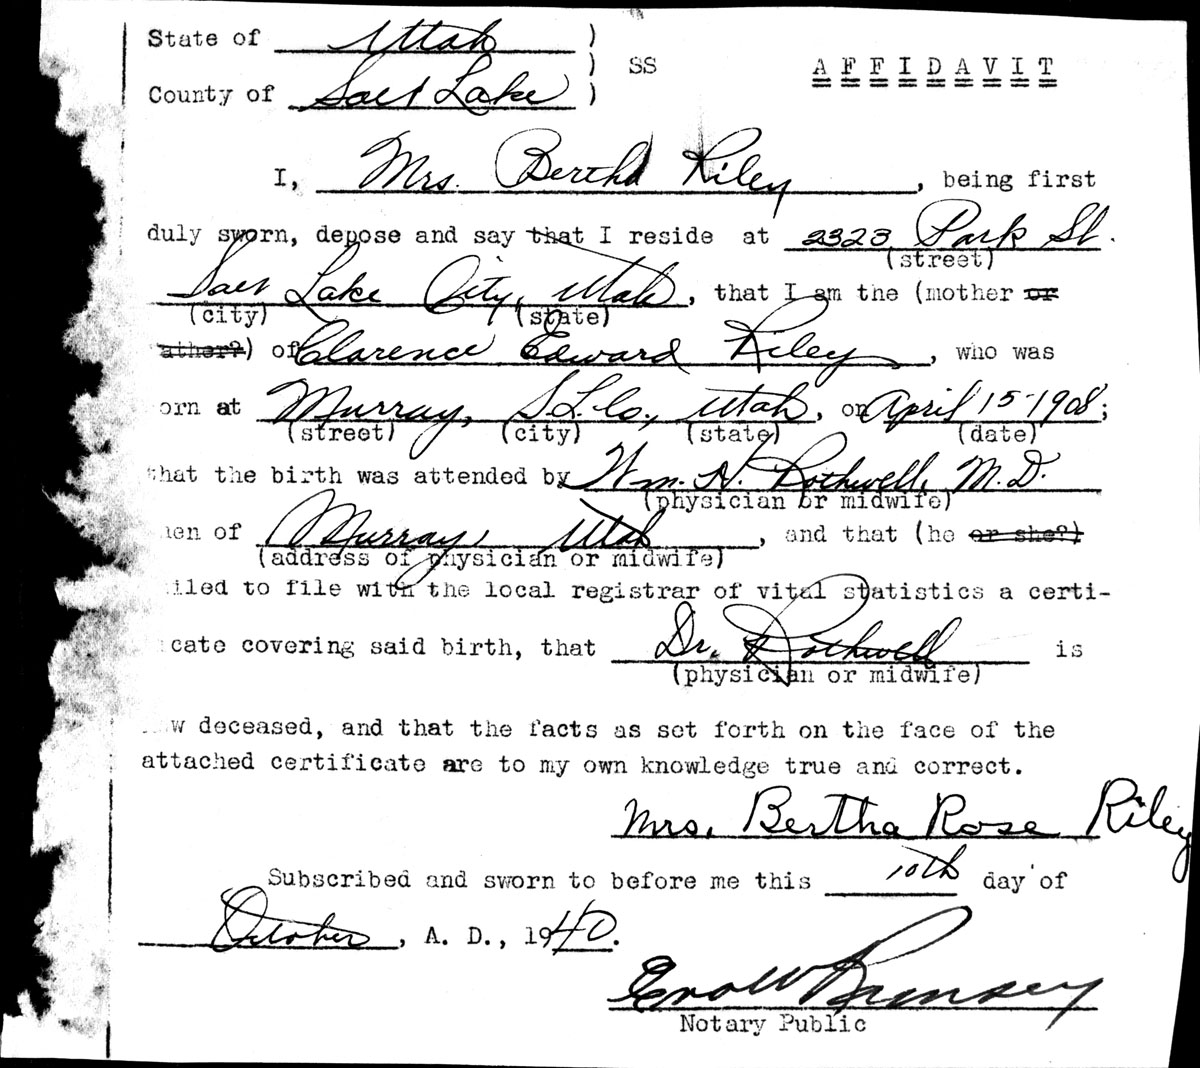 State of Utah )
) SS AFFIDAVIT
County of Salt Lake )
I, Mrs. Bertha Riley, being first
duly sworn, depose and say that I reside at 2323 Park St.
(street)
Salt Lake City, Utah, that I am the (mother or
(city) (state)
ather?) of Clarence Edward Riley, who was
orn at Murray, S.L.Co., Utah, on April 15-1908;
(street) (city) (state) (date)
that the birth was attended by Wm. H. Rothwell, M.D.
(physician or midwife)
hen of Murray, Utah, and that (he or she?)
(address of physician or midwife)
iled to file with the local registrar of vital statistics a certi-
icate covering said birth, that Dr. Rothwell is
(physician or midwife)
ow deceased, and that the facts as set forth on the face of the
attached certificate are to my own knowledge true and correct.
Mrs. Bertha Rose Riley
Subscribed and sworn to before me this 10th day of
October, A. D., 1940.
Ramsey
Notary Public